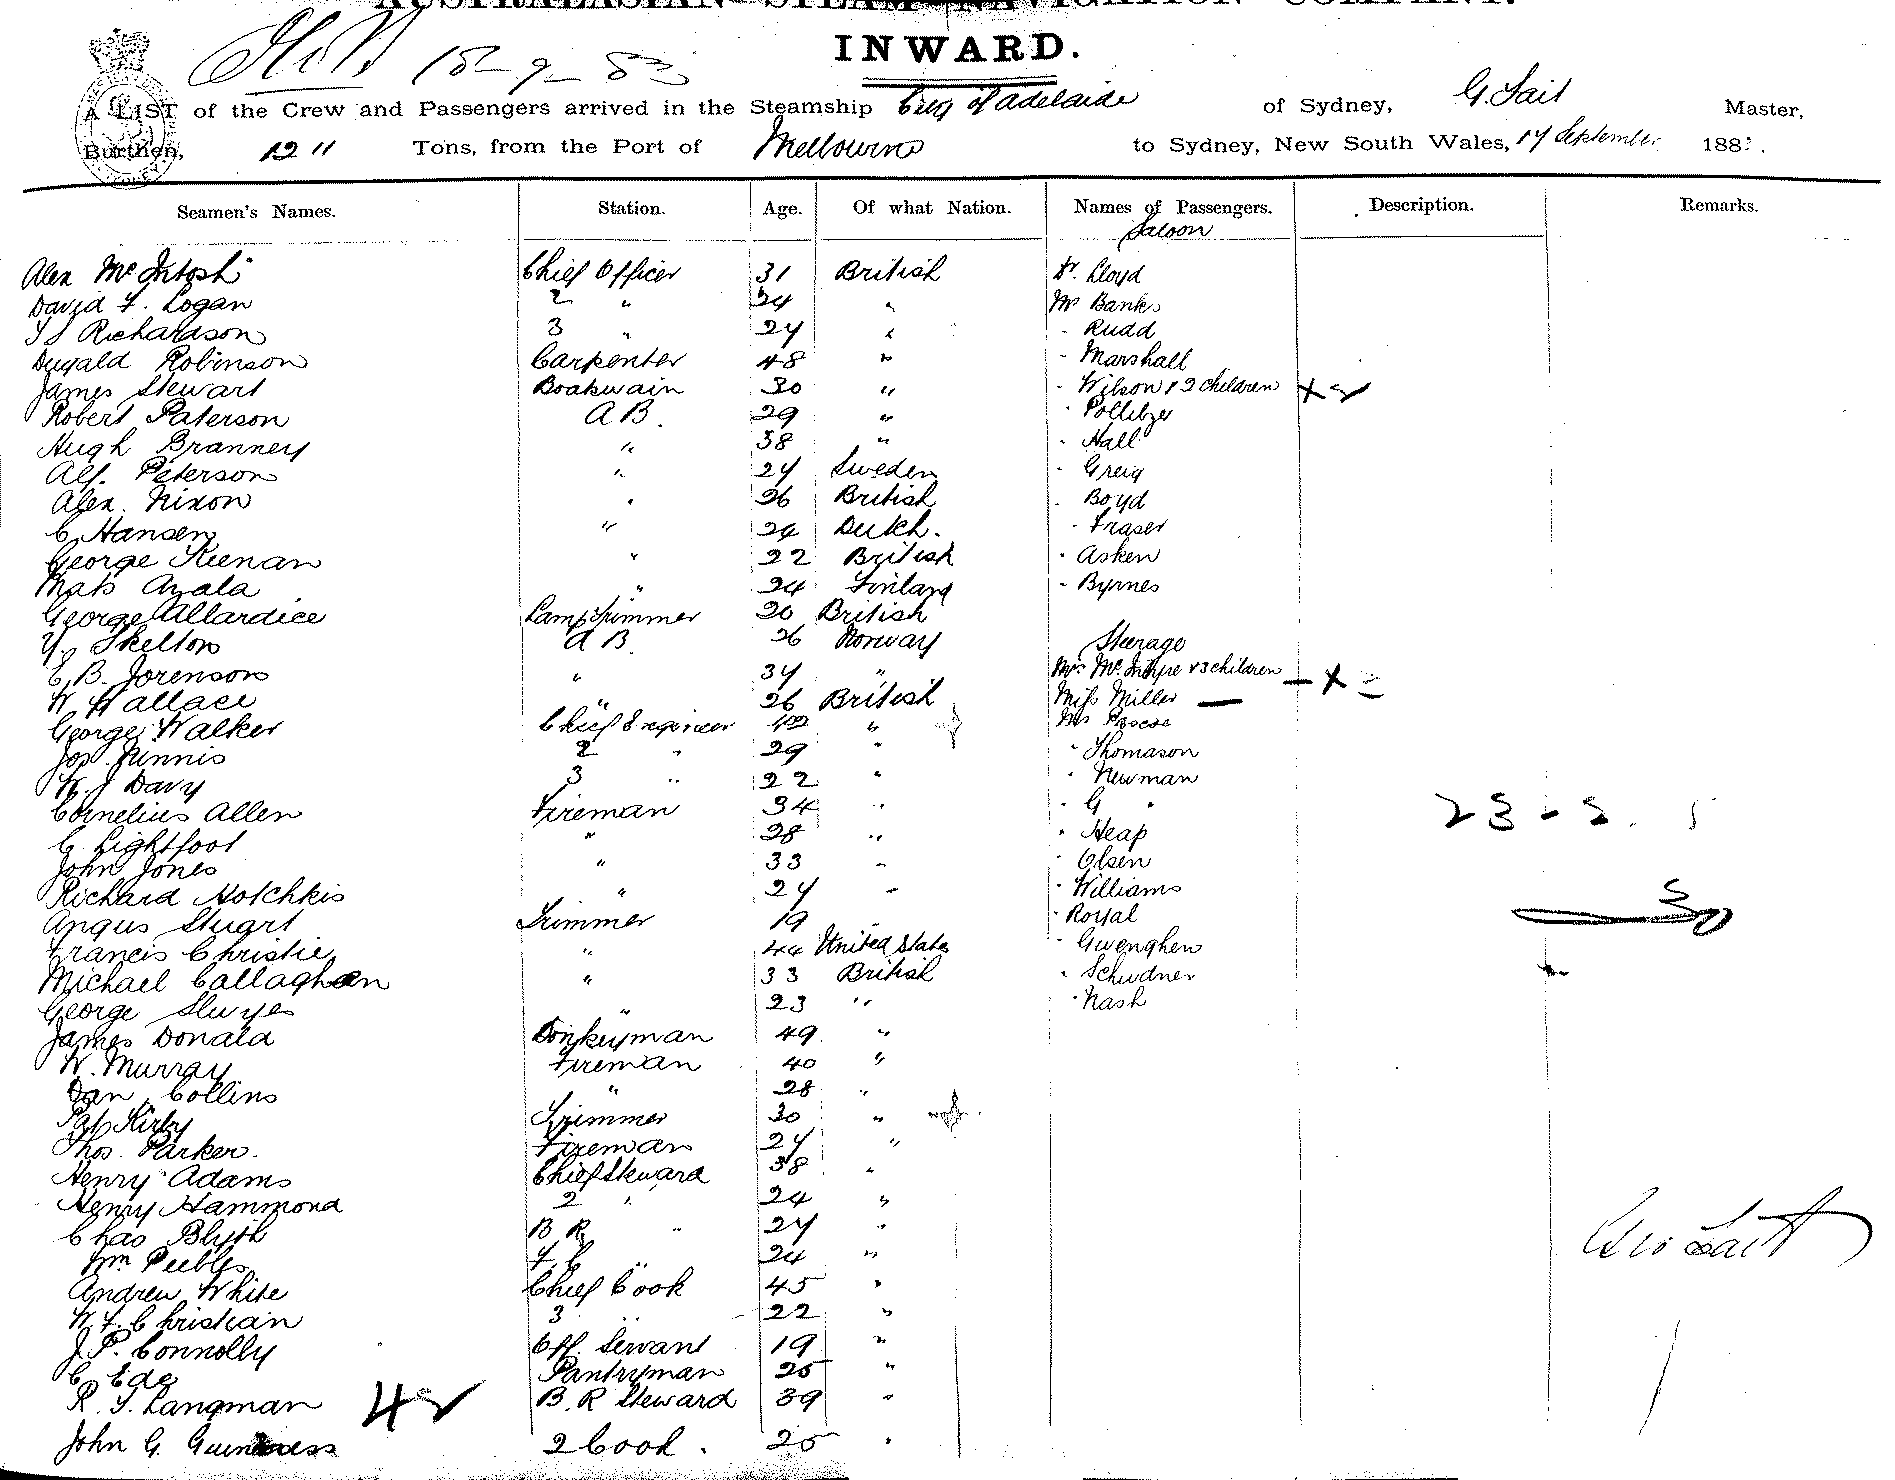 AUSTRALASIAN STEAM NAVIGATION COMPANY.
INWARD.
15-9-83
A LIST of the Crew and Passengers arrived in the Steamship City of Adelaide of Sydney, G. Sait Master,
Burthen, 1211 Tons, from the Port of Melbourne to Sydney, New South Wales, 17 September 188
Seamen's Names. Station. Age. Of what Nation. Names of Passengers. Description. Remarks.
Saloon
Alex McIntosh Chief Officer 31 British Dr. Lloyd
David F. Logan 2 " 24 " Mr Banks
Richardson 3 " 24 " - Rudd
Dugald Robinson Carpenter 48 " - Marshall
James Stewart Boatswain 30 " - Wilson & 2 children
Robert Paterson A B. 29 " - Pollitzer
Hugh Branney " 38 " - Hall
Alf. Peterson " 24 Sweden - Greig
Alex. Nixon " 26 British - Boyd
C. Hansen " 24 Dutch. - Fraser
George Keenan " 22 British - Asken
Mats " 24 Finland - Byrnes
George Allardice Lamp Trimmer 20 British
Skelton A B. 26 Norway Steerage
E. B. Jorenson " 34 " Mrs McIntyre & 3 children
W Wallace " 26 British Miss Miller
George Walker Chief Engineer 42 " Mr Pascoe
Jos. Nunnis 2 " 29 " " Thomason
W. J Davy 3 " 22 " " Newman
Cornelius Allen Fireman 34 " " G "
C. Lightfoot " 28 " " Heap
John Jones " 33 " " Olsen
Richard Hotchkis " 24 " " Williams
Angus Stuart Trimmer 19 " " Royal
Francis Christie " 44 United States " Gwenghen
Michael Callaghan " 33 British " Schudner
George " 23 " " Nash
James Donald Donkeyman 49 "
W. Murray Fireman 40 "
Dan Collins " 28 "
Pat Kirby Trimmer 30 "
Thos. Parker. Fireman 24 "
Henry Adams Chief Steward 38 "
Henry Hammond 2 " 24 "
Chas Blyth B R " 24 "
Wm Peebles F. C " 24 "
Andrew White Chief Cook 45 "
W. F. Christian 3 " 22 "
J. P. Connolly Off. Servant 19 "
C. Ede Pantryman 25 "
R. T. Langman B. R Steward 39 "
John G. 2 Cook. 25 "
Geo Sait